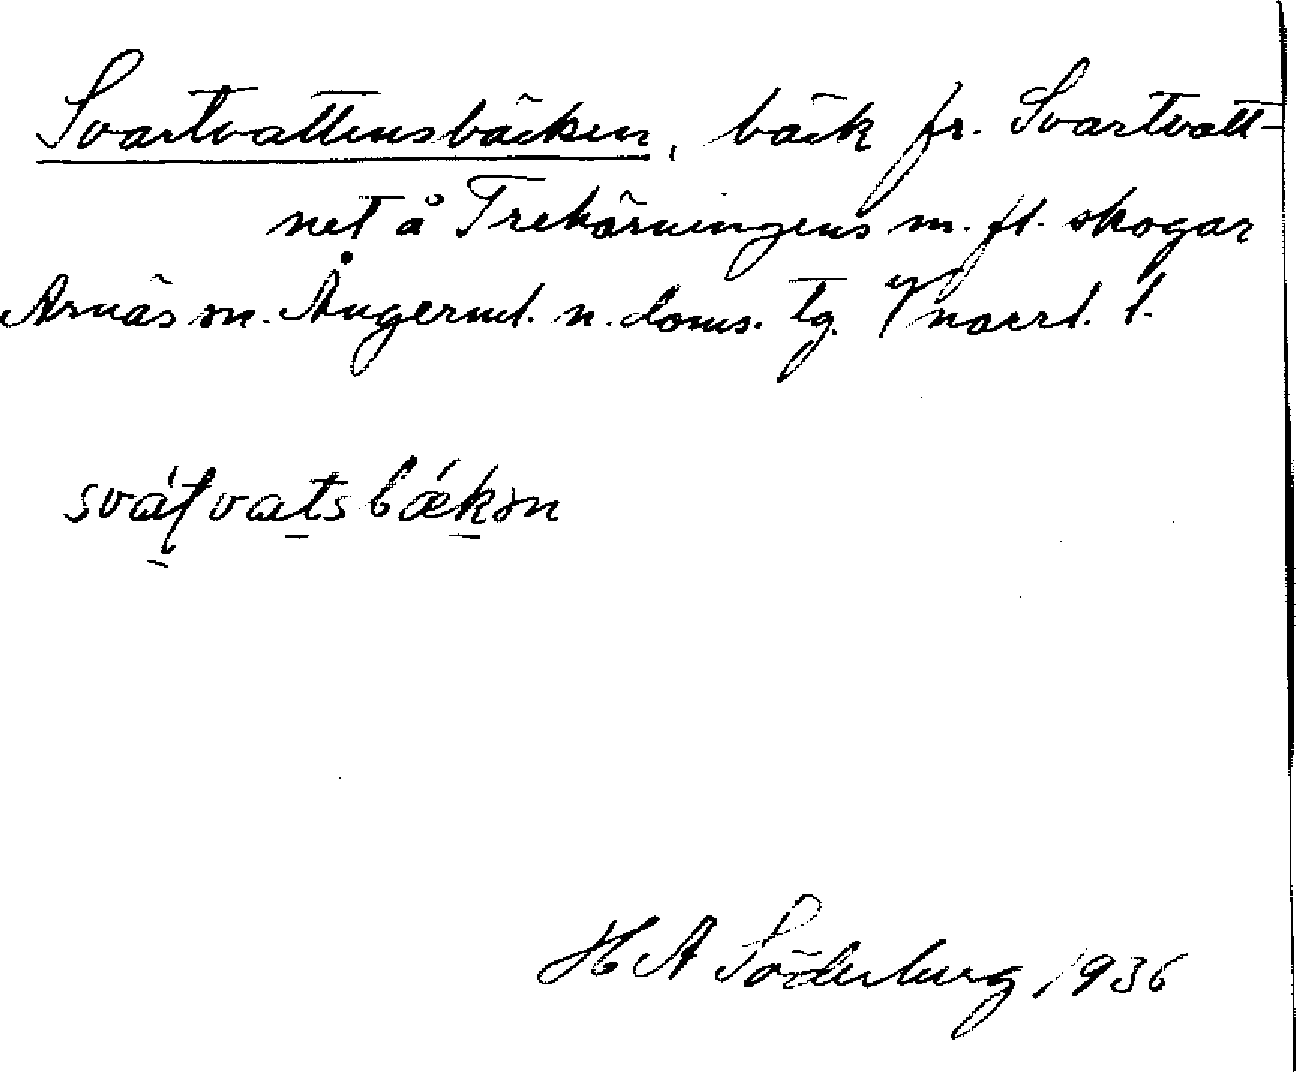 Svartvattensbäcken, bäck fr. Svartvatt-
net å Trehörningens m. fl. skogar
Arnäs sn. Ångerml. n. doms. tg. Vnorrl. l.
svátvatsbǽkən
H A Söderberg 1936